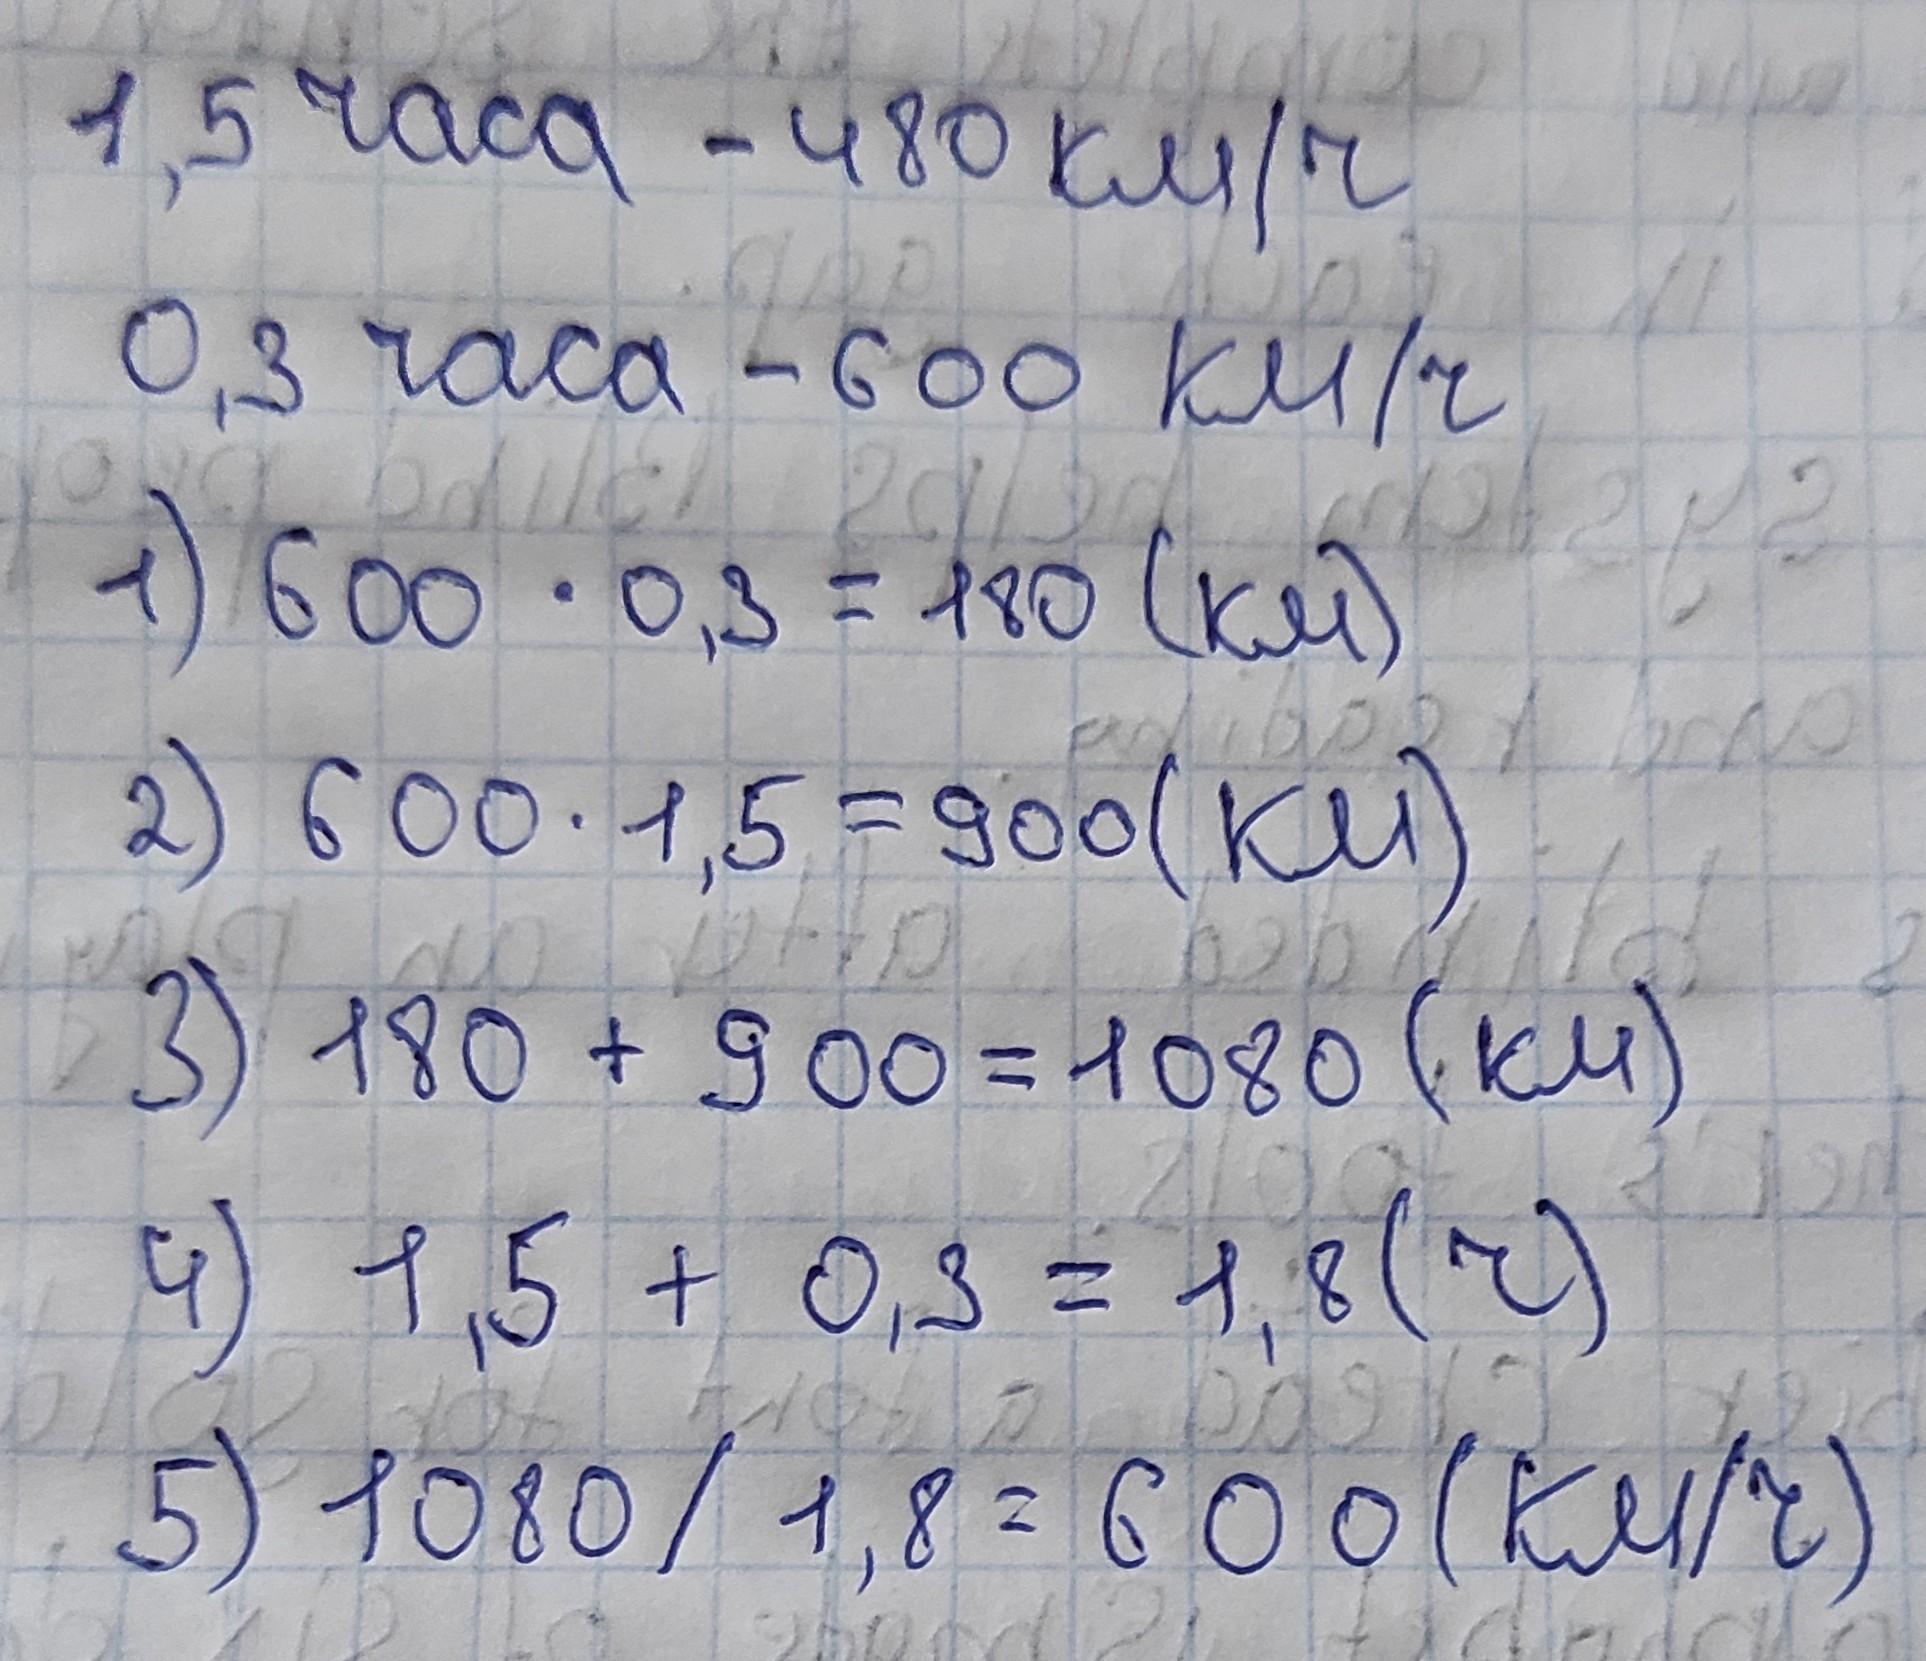 1,5 часа - 480 км/ч
0,3 часа - 600 км/ч
1) 600 · 0,3 = 180 (км)
2) 600 · 1,5 = 900 (км)
3) 180 + 900 = 1080 (км)
4) 1,5 + 0,3 = 1,8 (ч)
5) 1080 / 1,8 = 600 (км/ч)